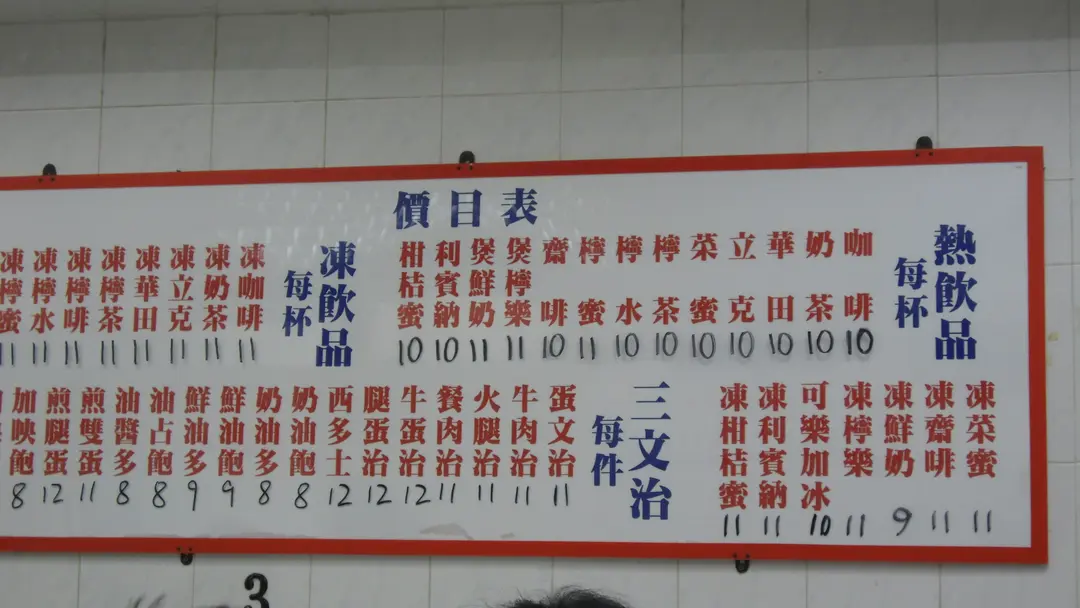 價目表
熱飲品
每杯
咖啡 10
奶茶 10
華田 10
立克 10
菜蜜 10
檸茶 10
檸水 10
檸蜜 11
齋啡 10
煲檸樂 11
煲鮮奶 11
利賓納 10
柑桔蜜 10
凍飲品
每杯
凍咖啡 11
凍奶茶 11
凍立克 11
凍華田 11
凍檸茶 11
凍檸啡 11
凍檸水 11
凍檸蜜
凍菜蜜 11
凍齋啡 11
凍鮮奶 9
凍檸樂 11
可樂加冰 10
凍利賓納 11
凍柑桔蜜 11
三文治
每件
蛋文治 11
牛肉治 11
火腿治 11
餐肉治 11
牛蛋治 12
腿蛋治 12
西多士 12
奶油飽 8
奶油多 8
鮮油飽 9
鮮油多 9
油占飽 8
油醬多 8
煎雙蛋 11
煎腿蛋 12
加映飽 8
3